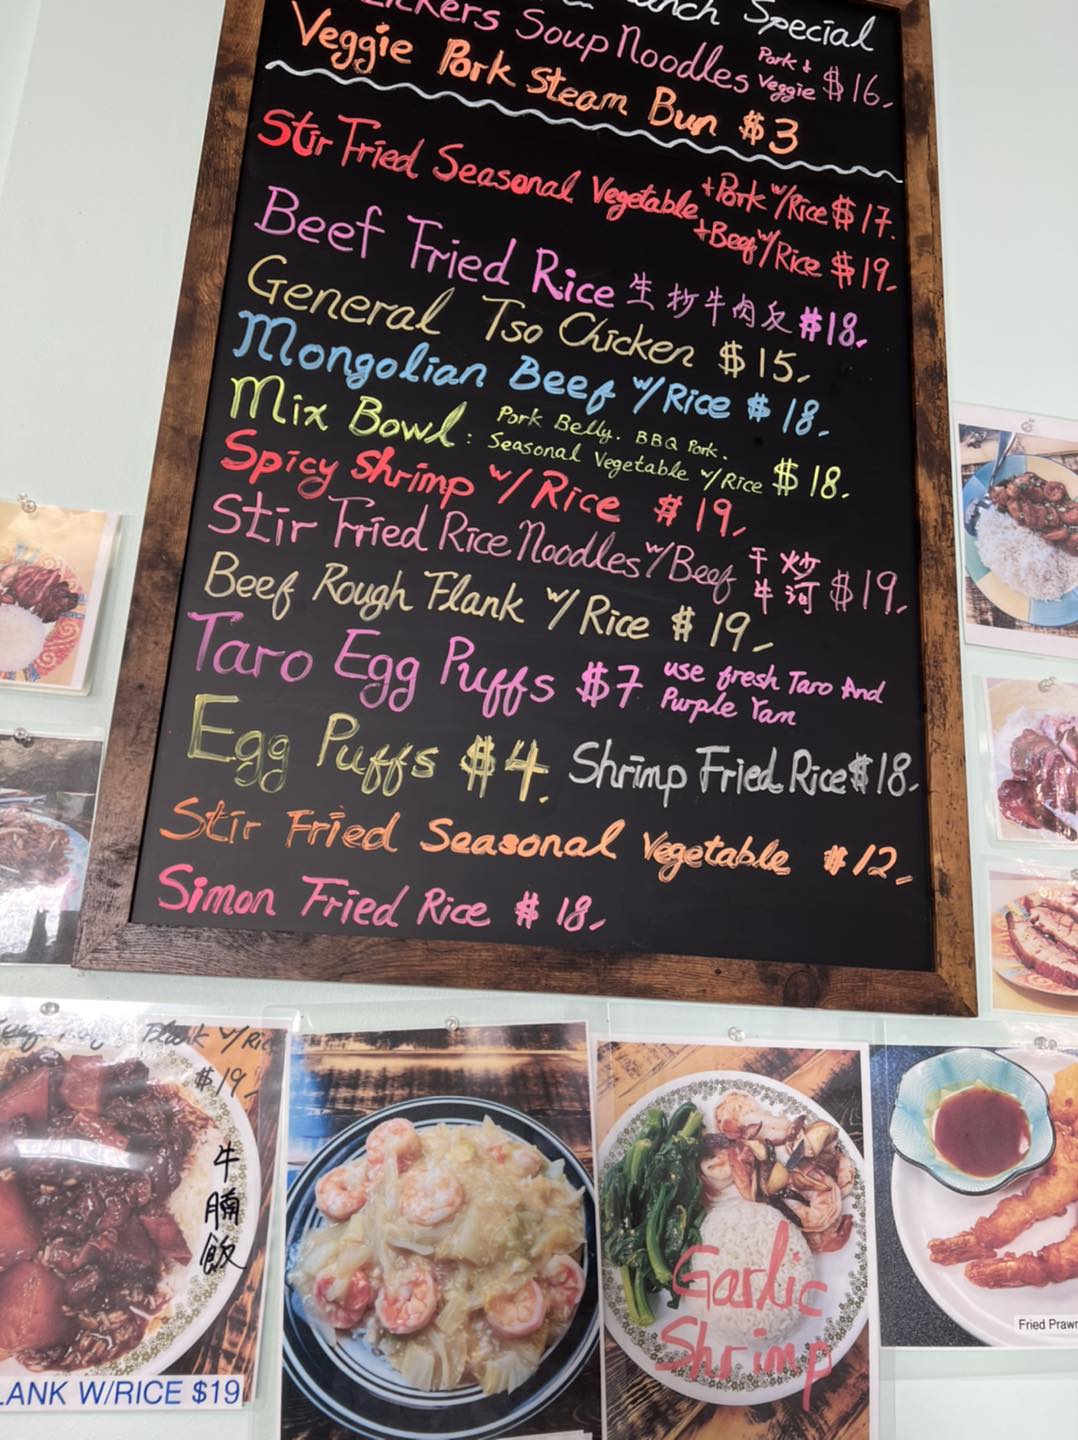 Special
Soup Noodles Pork + Veggie $16.
Veggie Pork Steam Bun $3
Stir Fried Seasonal Vegetable + Pork w/Rice $17.
+ Beef w/Rice $19.
Beef Fried Rice 生炒牛肉反 $18.
General Tso Chicken $15.
Mongolian Beef w/Rice $18.
Mix Bowl: Pork Belly. BBQ Pork.
Seasonal Vegetable w/Rice $18.
Spicy Shrimp w/Rice $19.
Stir Fried Rice Noodles w/Beef 干炒牛河 $19.
Beef Rough Flank w/Rice $19.
Taro Egg Puffs $7 use fresh Taro And
Purple Yam
Egg Puffs $4. Shrimp Fried Rice $18.
Stir Fried Seasonal Vegetable $12.
Simon Fried Rice $18.
Flank w/Rice
$19
牛
腩
飯
LANK W/RICE $19
Garlic
Shrimp
Fried Praw